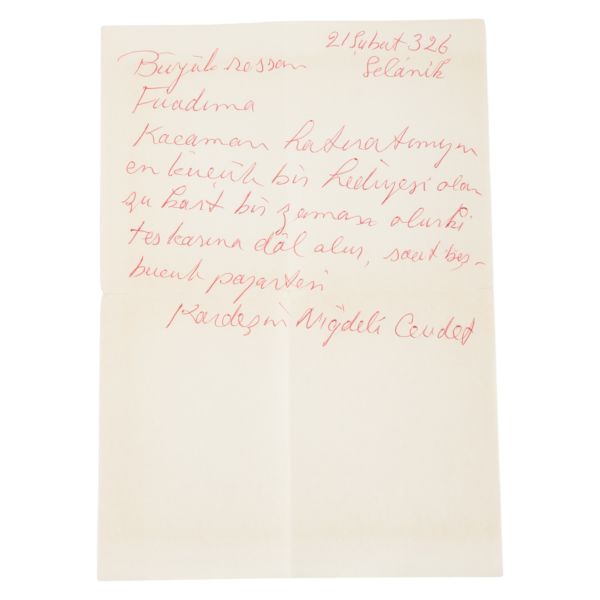 21 Şubat 326
Selânik
Büyük ressam
Fuadıma
Kacaman hatıratımın
en küçük bir hediyesi olan
şu kart bir zaman olurki
teskarına dâl olur, saat beş-
bucuk pazartesi
Kardeşin Niğdeli Cevdet